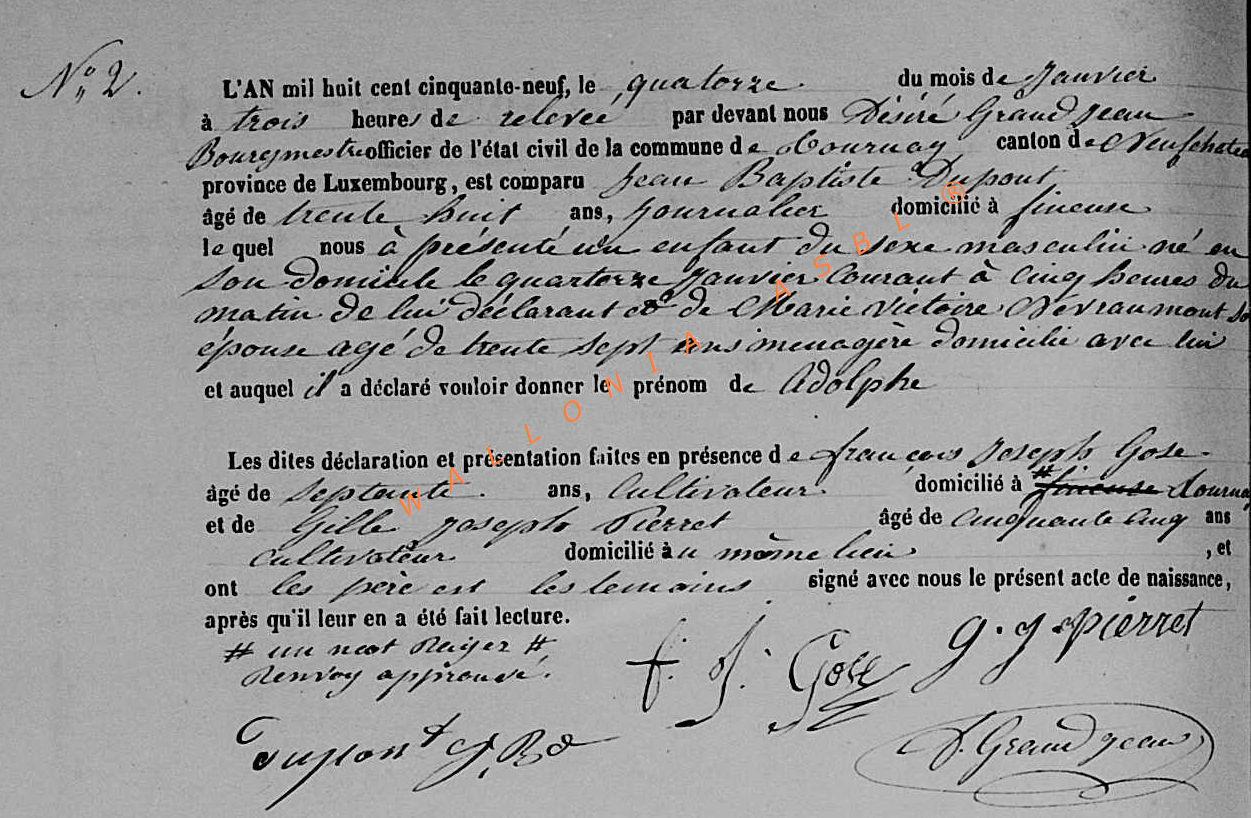 N° 2.
L'AN mil huit cent cinquante-neuf, le quatorze du mois de Janvier
à trois heures de relevée par devant nous Désiré Grand Jean
Bourgmestre officier de l'état civil de la commune de Tournay canton de Neufchateau
province de Luxembourg, est comparu Jean Baptiste Dupont
âgé de trente huit ans, Journalier domicilié à fineuse
le quel nous à présenté un enfant du sexe masculin né en
son domicile le quartorze Janvier Courant à Cinq heures du
matin de lui déclarant et de Marie Victoire Névraumont so
épouse agé de trente sept ans menagère domicilié avec lui
et auquel il a déclaré vouloir donner le prénom de Adolphe
Les dites déclaration et présentation faites en présence de françois Joseph Gose
âgé de septante ans, Cultivateur domicilié à # fineuse Tournay
et de Gille Joseph Pierret âgé de Cinquante Cinq ans
Cultivateur domicilié àu même lieu , et
ont les père est les temoins signé avec nous le présent acte de naissance,
après qu'il leur en a été fait lecture.
# un mot Raijer #
Renvoy approuvé.
f. J. Gose
g. J. Pierret
Dupont J. Bte
D. Grand Jean
WALLONIA ASBL ®